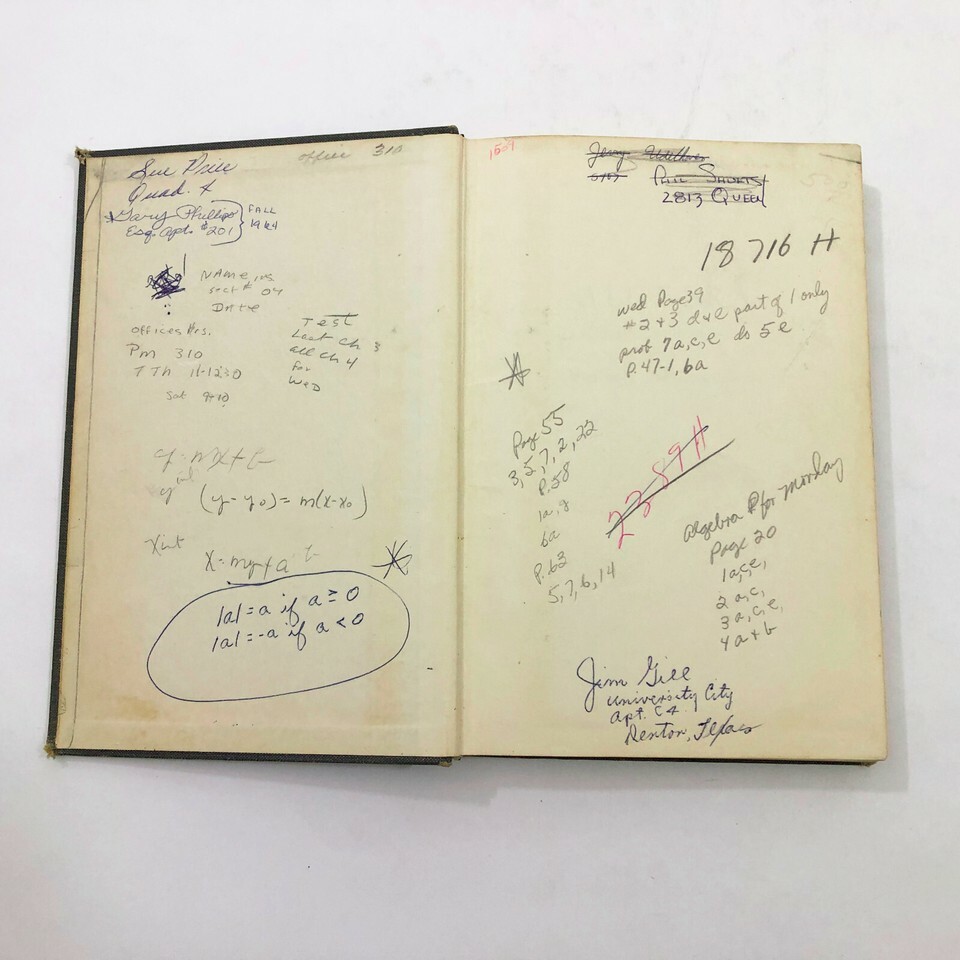 Office 310
Sue Price
Quad. 4
Gary Phillips
Esq. Apt. #201
FALL
1964
NAME, rs
sect # 04
DATE
offices Hrs.
Pm 310
T Th 11-1230
Sat 9-10
Test
Last ch 3
all ch 4
for
WED
y = mx + b
y int
(y - y₀) = m(x-x₀)
X int
X = my + a b
|a| = a if a ≥ 0
|a| = -a if a < 0
1509
Jerry
Phil Shorts
2813 Queen
18716 H
wed Page 39
#2 + 3 d+e part of 1 only
prob 7a,c,e do 5e
P.47-1, 6a
Page 55
3,5,7,2,22
P.58
1a,g
6a
P.62
5,7,6,14
2389H
Algebra P for Monday
Page 20
1a,c,e,
2 a,c,
3 a,c,e,
4 a + b
Jim Gill
University City
Apt. C4
Denton, Texas